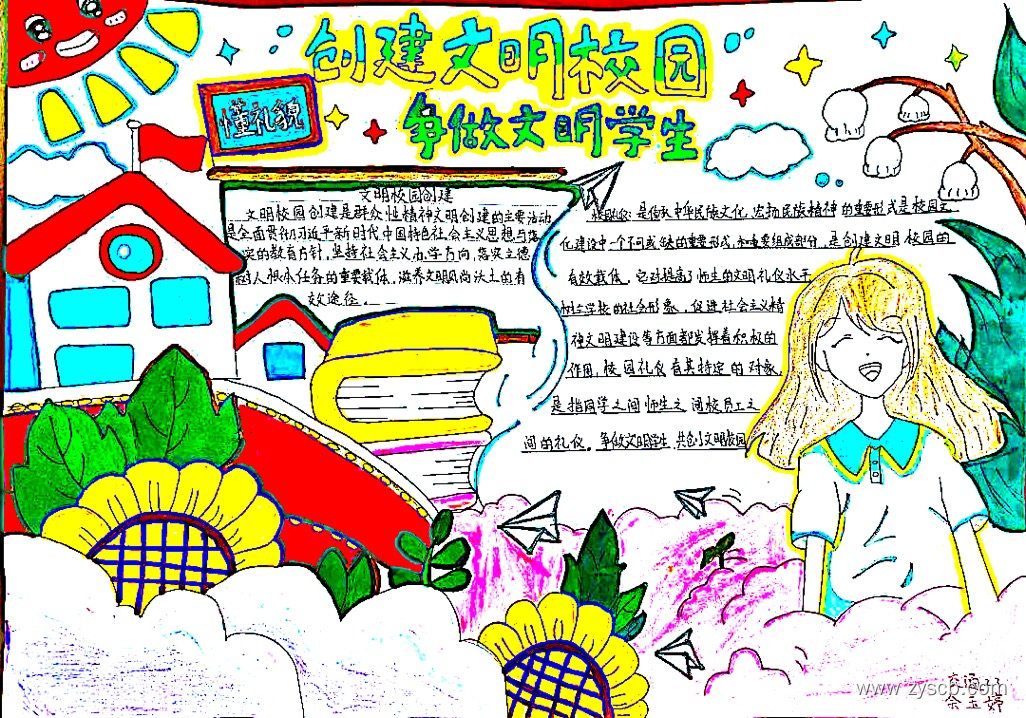 创建文明校园
争做文明学生
懂礼貌
文明校园创建
文明校园创建是群众性精神文明创建的主要活动
是全面贯彻习近平新时代中国特色社会主义思想与
的教育方针，坚持社会主义办学方向，落实立德
树人根本任务的重要载体，滋养文明风尚沃土的有
效途径。
是传承中华民族文化，宏扬民族精神的重要形式是校园文
化建设中一个不可或缺的重要形式和重要组成部分，是创建文明校园的
有效载体，它对提高了师生的文明礼仪水平
树立学校的社会形象，促进社会主义精
神文明建设等方面都发挥着积极的
作用，校园礼仪有其特定的对象，
是指同学之间师生之间校员工之
间的礼仪。争做文明学生 共创文明校园
www.zyscp.com